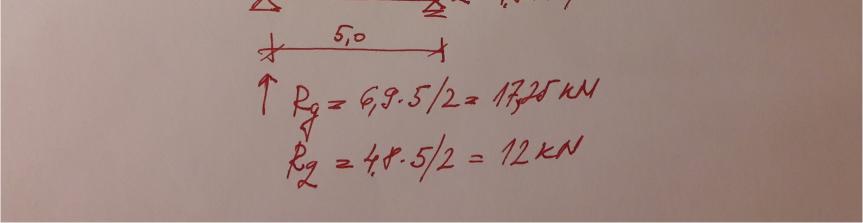 5,0
Rg = 6,9·5/2 = 17,25 kN
Rq = 4,8·5/2 = 12 kN